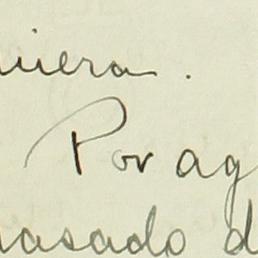 uiera.
Por ag
nasado d